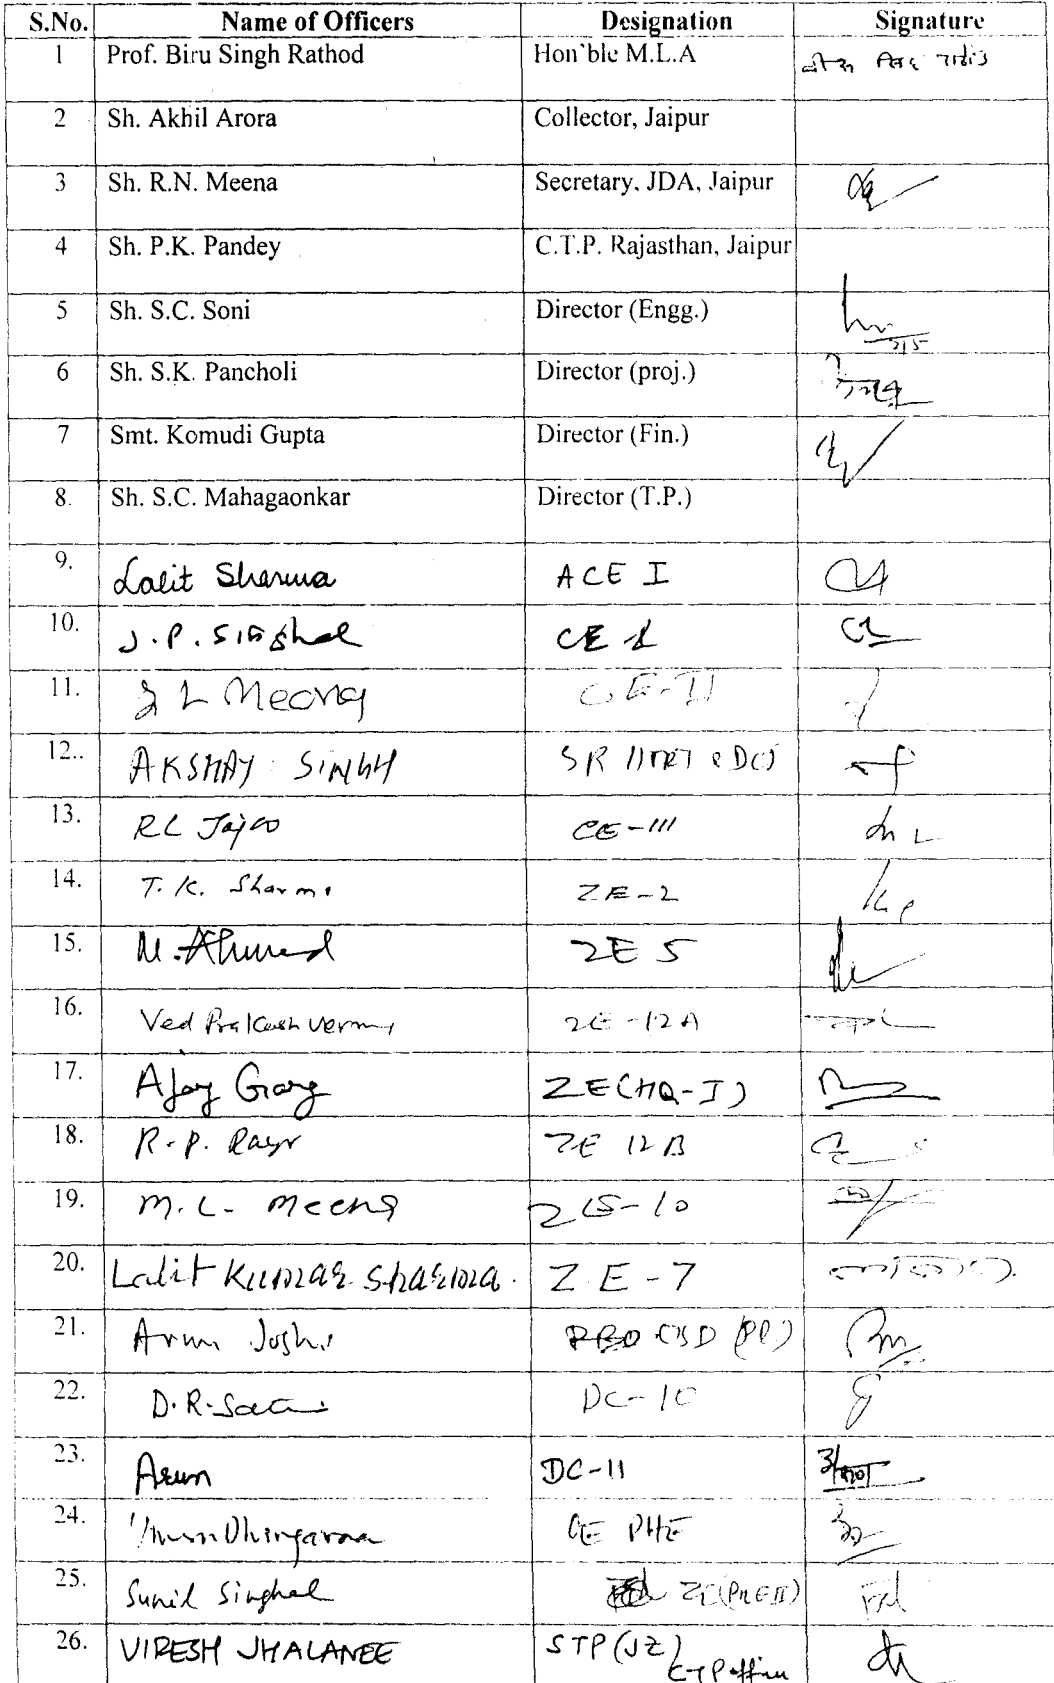 S.No. Name of Officers Designation Signature
1 Prof. Biru Singh Rathod Hon'ble M.L.A
2 Sh. Akhil Arora Collector, Jaipur
3 Sh. R.N. Meena Secretary, JDA, Jaipur
4 Sh. P.K. Pandey C.T.P. Rajasthan, Jaipur
5 Sh. S.C. Soni Director (Engg.)
6 Sh. S.K. Pancholi Director (proj.)
7 Smt. Komudi Gupta Director (Fin.)
8. Sh. S.C. Mahagaonkar Director (T.P.)
9. Lalit Sharma ACE I
10. J.P. Singhal CE
11. L Meena CE-II
12.. AKSHAY SINGH SR
13. RL CE-III
14. T.K. Sharma ZE-2
15. M. Ahmed ZE 5
16. Ved Prakash Verma ZE-12A
17. Ajay Garg ZE(HQ-I)
18. R.P. ZE 12B
19. M.L. Meena ZE-10
20. Lalit Kumar Sharma. ZE-7
21. Arun Joshi
22. D.R. DC-10
23. Arun DC-11
24. CE PHE
25. Sunil Singhal
26. VIRESH JHALANEE STP (JZ)
CTP office